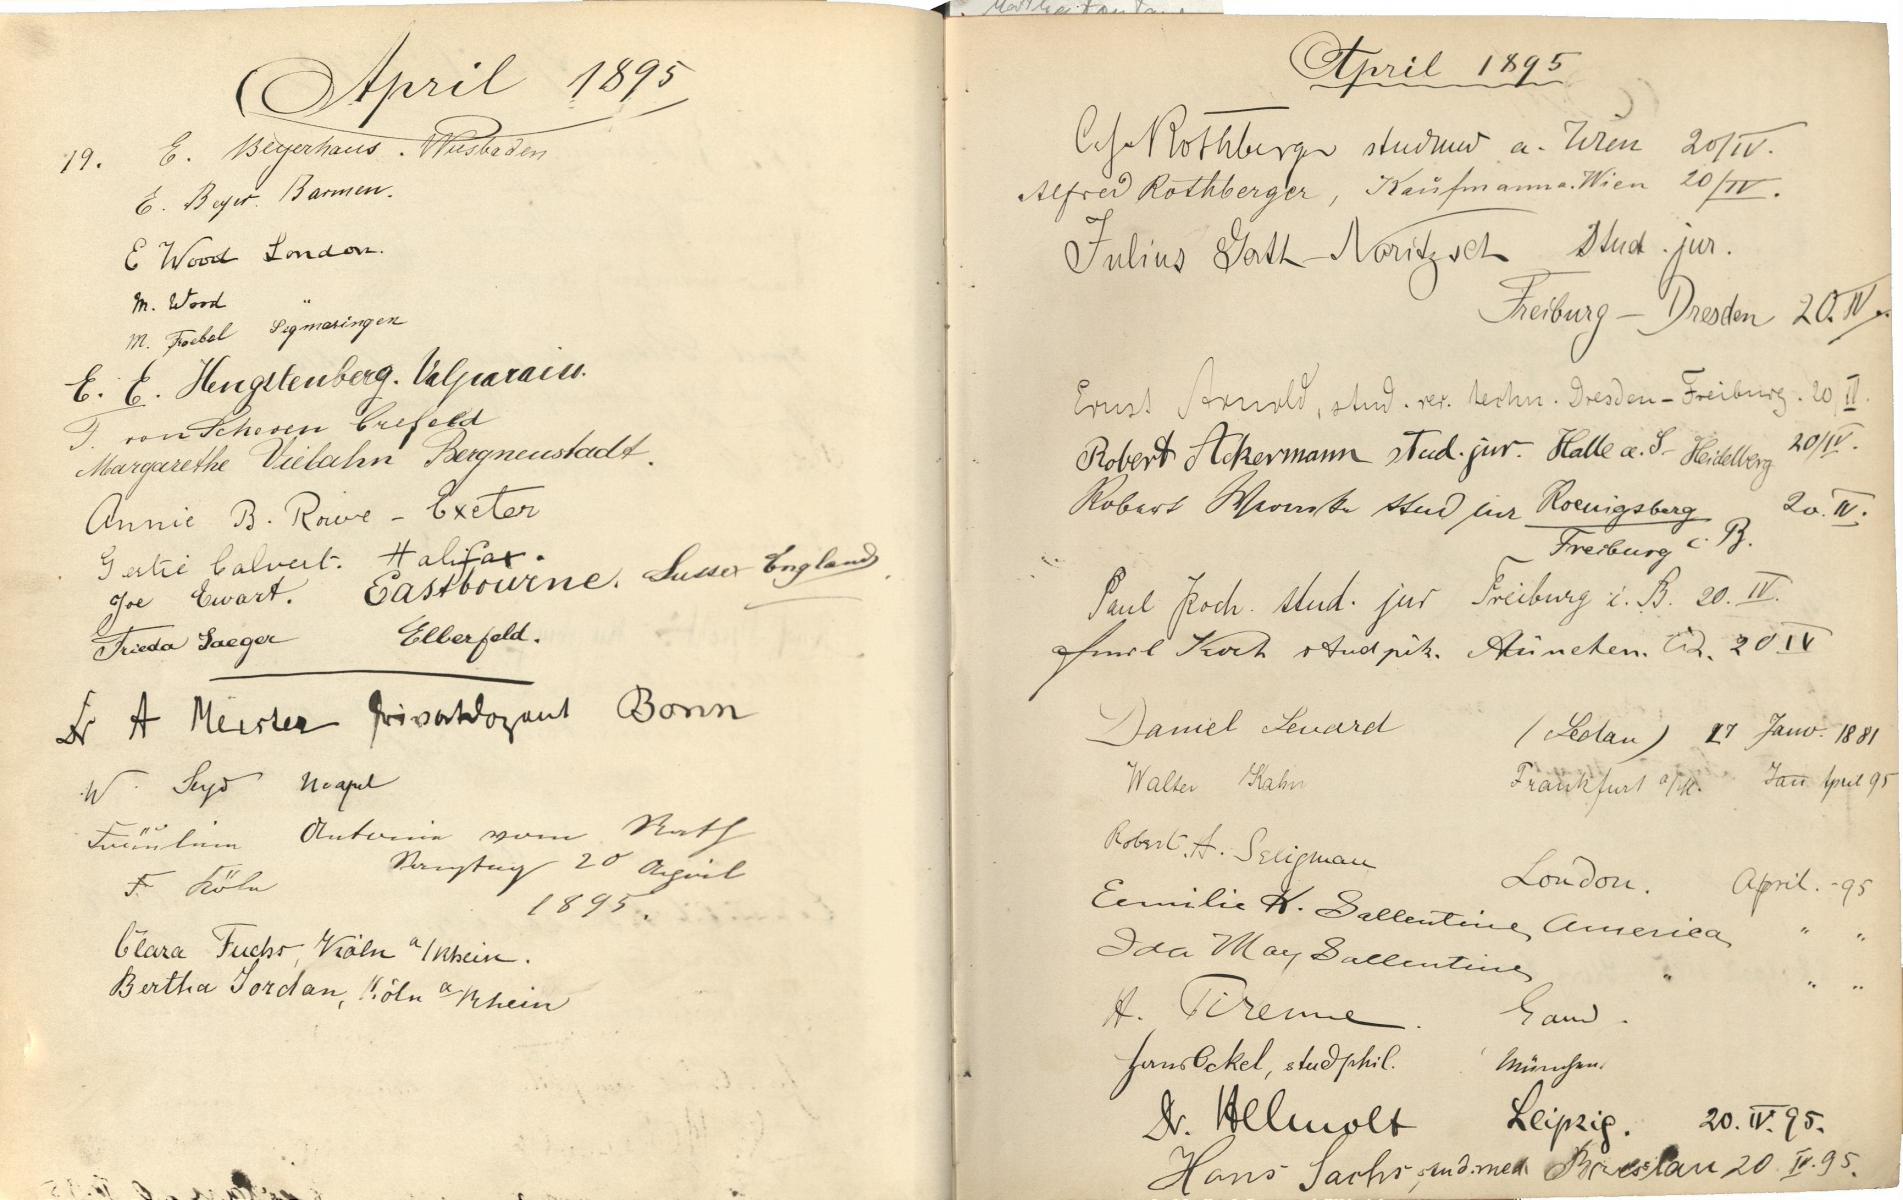 April 1895
19. E. Beyerhaus. Wiesbaden
E. Beyer. Barmen.
E Wood London.
M. Wood "
M. Froebel Sigmaringen
E. E. Hengstenberg. Valparaiso.
T. von Scheven Crefeld
Margarethe Viebahn Bergneustadt.
Annie B. Rowe - Exeter
Gertie Calvert. Halifax.
Joe Ewart. Eastbourne. Sussex England.
Frieda Jaeger Elberfeld.
Dr A Meister Privatdozent Bonn
W. Seyd Neapel
Fräulein Antonie vom Rath
Samstag 20 April
F. Köln
1895.
Clara Fuchs, Köln a/Rhein.
Bertha Jordan, Köln a/Rhein
April 1895
Rothberger a. Wien 20/IV.
Alfred Rothberger, Kaufmann a. Wien 20/IV.
Julius Gath-Noritzsch Stud. jur.
Freiburg - Dresden 20. IV.
Ernst Arnold, stud. rer. techn. Dresden - Freiburg. 20/IV.
Robert Ackermann stud. jur. Halle a. S - Heidelberg 20/IV.
Robert stud jur Koenigsberg 20. IV.
Freiburg i. B.
Paul Koch. stud. jur Freiburg i. B. 20. IV.
Emil Koch stud München. 20 IV
Daniel (Sedan) 17 Janv. 1881
Walter Kahn Frankfurt a/M. Jan April 95
Robert. A. Seligman London. April. - 95
Eemilie K. Ballentine, America, " "
Ida May Ballentine, " " "
H. Pirenne. Gand.
Hans Eckel, stud phil. München.
Dr. Helmolt Leipzig. 20. IV. 95.
Hans Sachs, stud. med. Breslau 20 IV. 95.